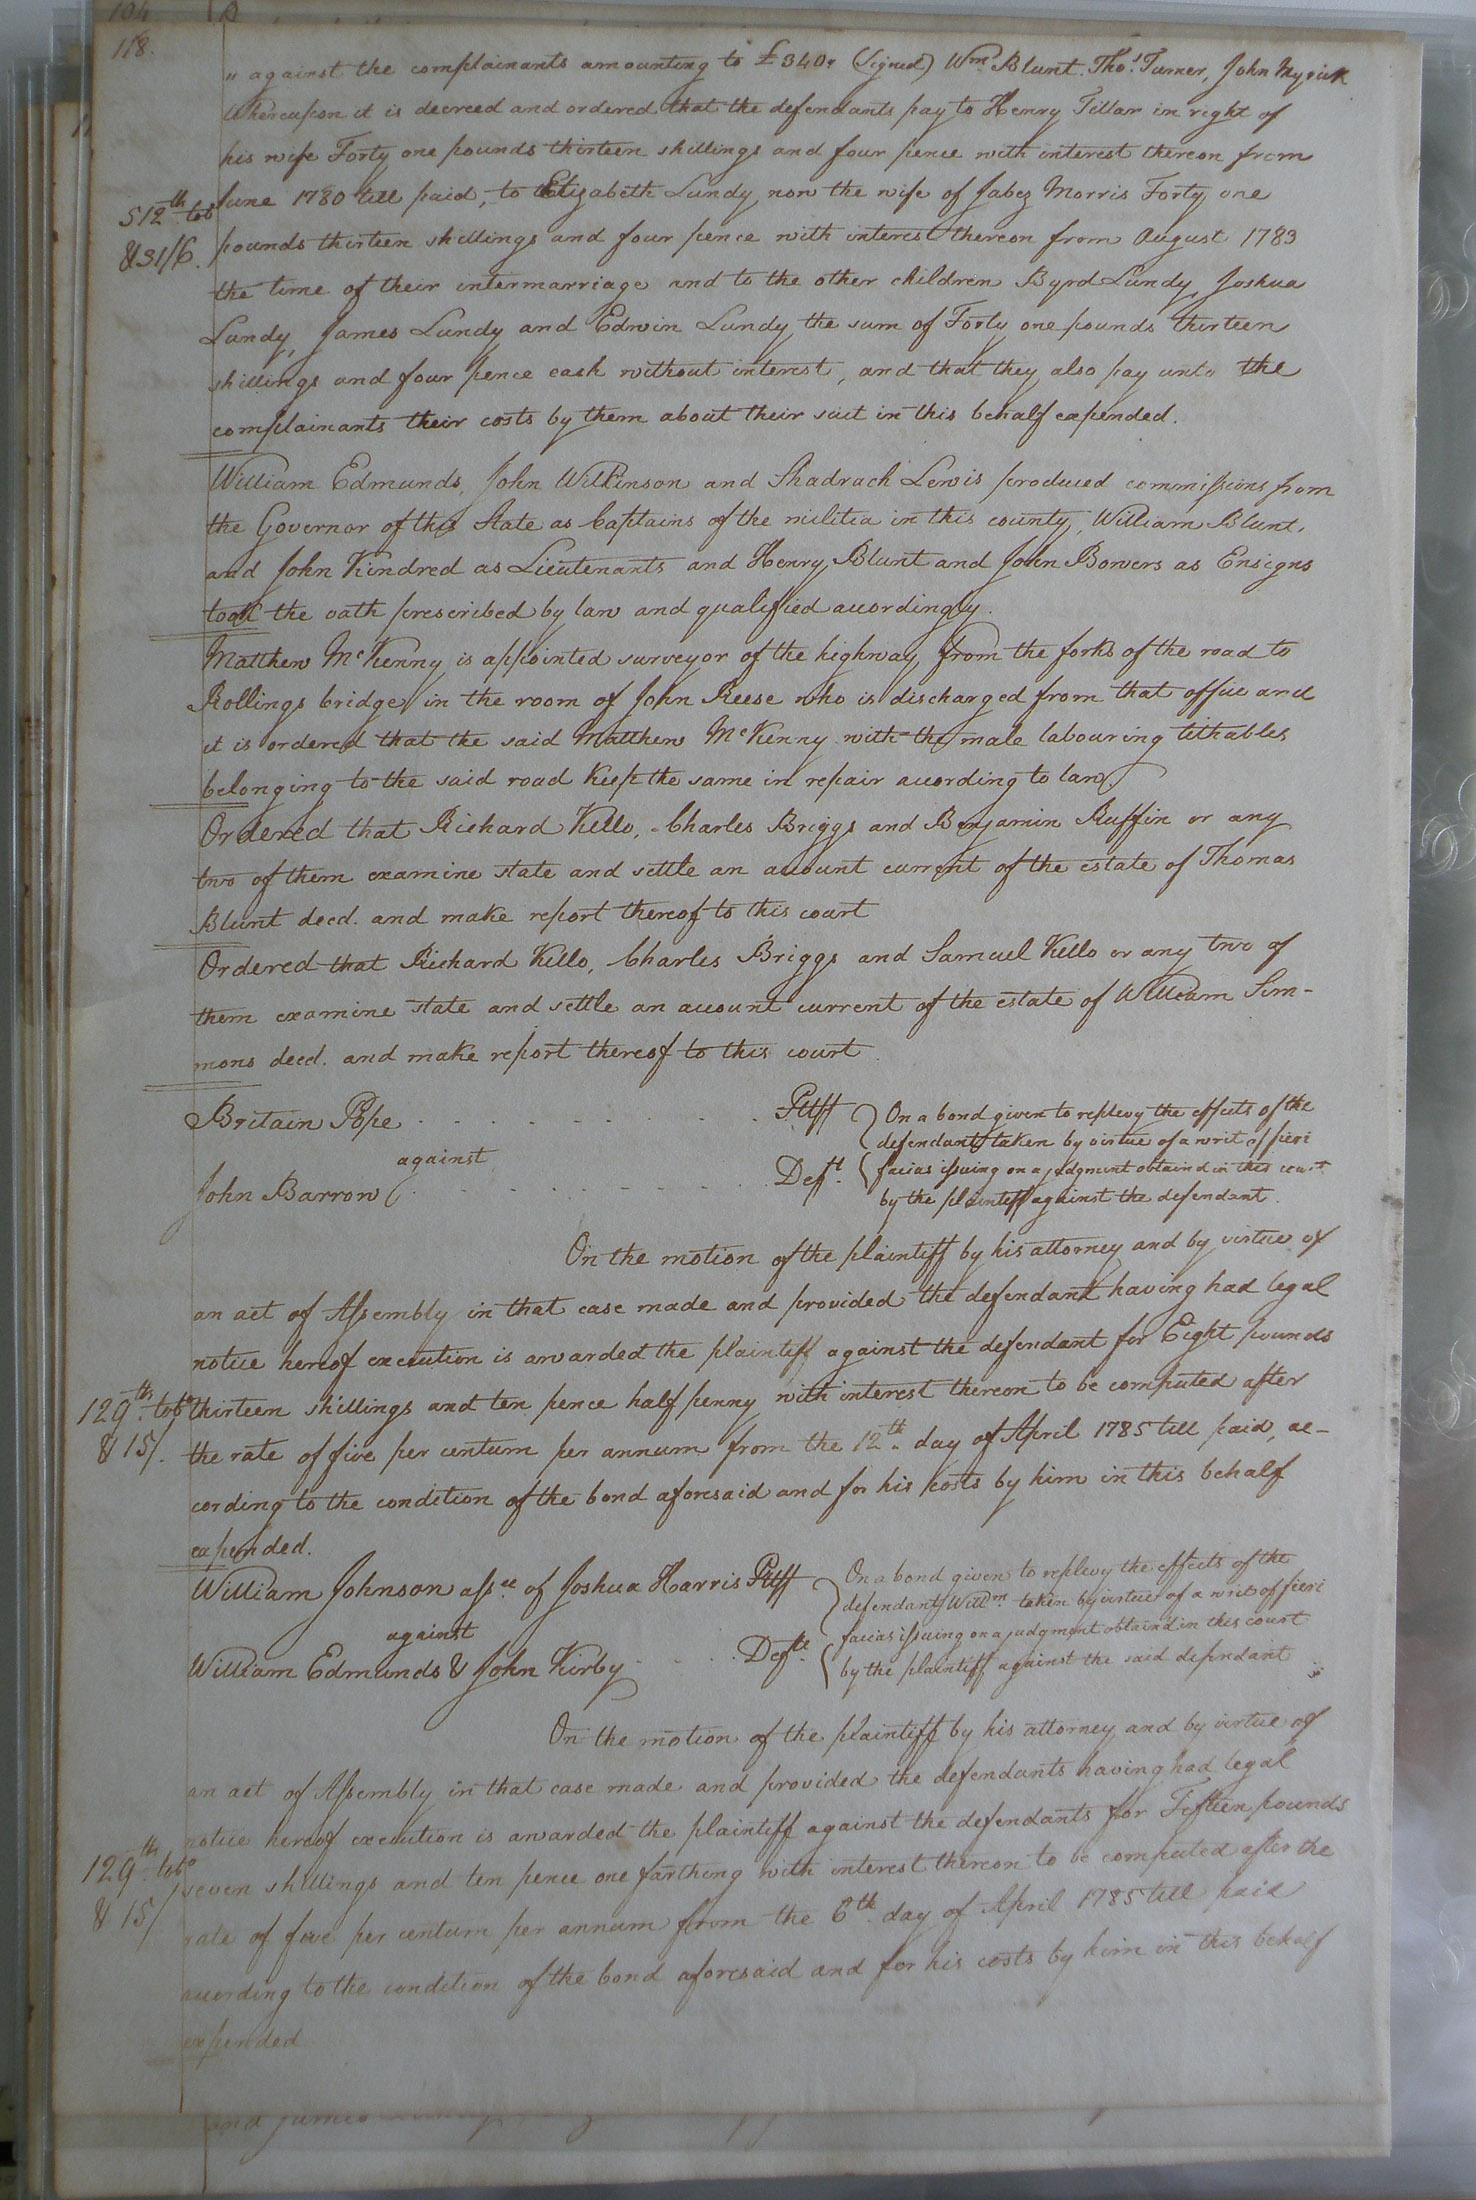 104
118.
" against the complainants amounting to £340. (Signed) Wm. Blunt. Thos. Turner, John Myrick
Whereupon it is decreed and ordered that the defendants pay to Henry Tillar in right of
his wife Forty one pounds thirteen shillings and four pence with interest thereon from
June 1780 till paid, to Elizabeth Lundy, now the wife of Jabez Morris Forty one
512th. tobo
pounds thirteen shillings and four pence with interest thereon from August 1783
& 31/6.
the time of their intermarriage and to the other children Byrd Lundy, Joshua
Lundy, James Lundy and Edwin Lundy the sum of Forty one pounds thirteen
shillings and four pence each without interest, and that they also pay unto the
complainants their costs by them about their suit in this behalf expended.
William Edmunds, John Wilkinson and Shadrach Lewis produced commissions from
the Governor of this State as Captains of the militia in this county, William Blunt,
and John Kindred as Lieutenants and Henry Blunt and John Bowers as Ensigns
took the oath prescribed by law and qualified accordingly.
Matthew McKenny is appointed surveyor of the highway from the forks of the road to
Rollings bridge in the room of John Reese who is discharged from that office and
it is ordered that the said Matthew McKenny with the male labouring tithables
belonging to the said road keep the same in repair according to law
Ordered that Richard Kello, Charles Briggs and Benjamin Ruffin or any
two of them examine state and settle an account current of the estate of Thomas
Blunt decd. and make report thereof to this court
Ordered that Richard Kello, Charles Briggs and Samuel Kello or any two of
them examine state and settle an account current of the estate of William Sim-
mons decd. and make report thereof to this court.
Britain Pope . . . . . . . . Pltff
against
John Barrow . . . . . . . . Deft.
On a bond given to replevy the effects of the
defendant taken by virtue of a writ of fieri
facias issuing on a judgment obtaind in this court
by the plaintiff against the defendant.
On the motion of the plaintiff by his attorney and by virtue of
an act of Assembly in that case made and provided the defendant having had legal
notice hereof execution is awarded the plaintiff against the defendant for Eight pounds
129ths. tobo
thirteen shillings and ten pence half penny with interest thereon to be computed after
& 15/.
the rate of five per centum per annum from the 12th. day of April 1785 till paid, ac-
cording to the condition of the bond aforesaid and for his costs by him in this behalf
expended.
William Johnson assee. of Joshua Harris Pltff
against
William Edmunds & John Kirby . . . . Defts.
On a bond given to replevy the effects of the
defendant Willm. taken by virtue of a writ of fieri
facias issuing on a judgment obtaind in this court
by the plaintiff against the said defendant
On the motion of the plaintiff by his attorney and by virtue of
an act of Assembly in that case made and provided the defendants having had legal
notice hereof execution is awarded the plaintiff against the defendants for Fifteen pounds
129ths. tobo
seven shillings and ten pence one farthing with interest thereon to be computed after the
& 15/
rate of five per centum per annum from the 6th. day of April 1785 till paid
according to the condition of the bond aforesaid and for his costs by him in this behalf
expended
and James